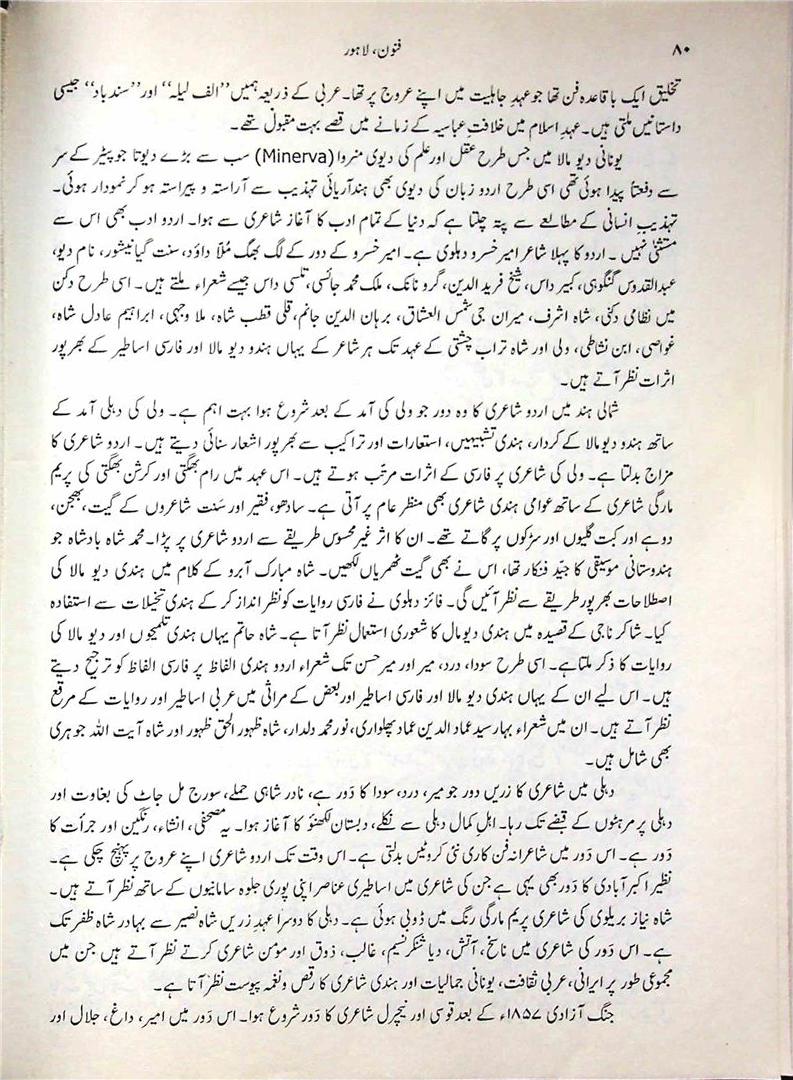 ۸۰
فنون، لاہور
تخلیق ایک باقاعدہ فن تھا جو عہدِ جاہلیت میں اپنے عروج پر تھا۔ عربی کے ذریعہ ہمیں ’’الف لیلہ‘‘ اور ’’سند باد‘‘ جیسی
داستانیں ملتی ہیں۔ عہدِ اسلام میں خلافتِ عباسیہ کے زمانے میں قصے بہت مقبول تھے۔
یونانی دیو مالا میں جس طرح عقل اور علم کی دیوی منروا (Minerva) سب سے بڑے دیوتا جوپیٹر کے سر
سے دفعتاً پیدا ہوئی تھی اسی طرح اردو زبان کی دیوی بھی ہند آریائی تہذیب سے آراستہ و پیراستہ ہو کر نمودار ہوئی۔
تہذیبِ انسانی کے مطالعے سے پتہ چلتا ہے کہ دنیا کے تمام ادب کا آغاز شاعری سے ہوا۔ اردو ادب بھی اس سے
مستثنیٰ نہیں۔ اردو کا پہلا شاعر امیر خسرو دہلوی ہے۔ امیر خسرو کے دور کے لگ بھگ مُلّا داؤد، سنت گیانیشور، نام دیو،
عبدالقدوس گنگوہی، کبیر داس، شیخ فرید الدین، گرو نانک، ملک محمد جائسی، تلسی داس جیسے شعراء ملتے ہیں۔ اسی طرح دکن
میں نظامی دکنی، شاہ اشرف، میران جی شمس العشاق، برہان الدین جانم، قلی قطب شاہ، ملا وجہی، ابراہیم عادل شاہ،
غواصی، ابن نشاطی، ولی اور شاہ تراب چشتی کے عہد تک ہر شاعر کے یہاں ہندو دیو مالا اور فارسی اساطیر کے بھرپور
اثرات نظر آتے ہیں۔
شمالی ہند میں اردو شاعری کا وہ دور جو ولی کی آمد کے بعد شروع ہوا بہت اہم ہے۔ ولی کی دہلی آمد کے
ساتھ ہندو دیو مالا کے کردار، ہندی تشبیہیں، استعارات اور تراکیب سے بھرپور اشعار سنائی دیتے ہیں۔ اردو شاعری کا
مزاج بدلتا ہے۔ ولی کی شاعری پر فارسی کے اثرات مرتّب ہوتے ہیں۔ اس عہد میں رام بھگتی اور کرشن بھگتی کی پریم
مارگی شاعری کے ساتھ عوامی ہندی شاعری بھی منظرِ عام پر آتی ہے۔ سادھو، فقیر اور سَنت شاعروں کے گیت، بھجن،
دوہے اور کبت گلیوں اور سڑکوں پر گاتے تھے۔ ان کا اثر غیر محسوس طریقے سے اردو شاعری پر پڑا۔ محمد شاہ بادشاہ جو
ہندوستانی موسیقی کا جیّد فنکار تھا، اس نے بھی گیت ٹھمریاں لکھیں۔ شاہ مبارک آبرو کے کلام میں ہندی دیو مالا کی
اصطلاحات بھرپور طریقے سے نظر آئیں گی۔ فائز دہلوی نے فارسی روایات کو نظر انداز کر کے ہندی تخیلات سے استفادہ
کیا۔ شاکر ناجی کے قصیدہ میں ہندی دیومال کا شعوری استعمال نظر آتا ہے۔ شاہ حاتم یہاں ہندی تلمیحوں اور دیو مالا کی
روایات کا ذکر ملتا ہے۔ اسی طرح سودا، درد، میر اور میر حسن تک شعراء اردو ہندی الفاظ پر فارسی الفاظ کو ترجیح دیتے
ہیں۔ اس لیے ان کے یہاں ہندی دیو مالا اور فارسی اساطیر اور بعض کے مراثی میں عربی اساطیر اور روایات کے مرقع
نظر آتے ہیں۔ ان میں شعراء بہار سید عماد الدین عماد پھلواری، نور محمد ولدار، شاہ ظہور الحق ظہور اور شاہ آیت اللہ جوہری
بھی شامل ہیں۔
دہلی میں شاعری کا زریں دور جو میر، درد، سودا کا دَور ہے، نادر شاہی حملے، سورج مل جاٹ کی بغاوت اور
دہلی پر مرہٹوں کے قبضے تک رہا۔ اہلِ کمال دہلی سے نکلے، دبستان لکھنؤ کا آغاز ہوا۔ یہ مصحفی، انشاء، رنگین اور جرأت کا
دَور ہے۔ اس دَور میں شاعرانہ فن کاری نئی کروٹیں بدلتی ہے۔ اس وقت تک اردو شاعری اپنے عروج پر پہنچ چکی ہے۔
نظیر اکبر آبادی کا دَور بھی یہی ہے جن کی شاعری میں اساطیری عناصر اپنی پوری جلوہ سامانیوں کے ساتھ نظر آتے ہیں۔
شاہ نیاز بریلوی کی شاعری پریم مارگی رنگ میں ڈوبی ہوئی ہے۔ دہلی کا دوسرا عہدِ زریں شاہ نصیر سے بہادر شاہ ظفر تک
ہے۔ اس دَور کی شاعری میں ناسخ، آتش، دیا شنکر نسیم، غالب، ذوق اور مومن شاعری کرتے نظر آتے ہیں جن میں
مجموعی طور پر ایرانی، عربی ثقافت، یونانی جمالیات اور ہندی شاعری کا رقص و نغمہ پیوست نظر آتا ہے۔
جنگ آزادی ۱۸۵۷ء کے بعد قوسی اور نیچرل شاعری کا دَور شروع ہوا۔ اس دَور میں امیر، داغ، جلال اور